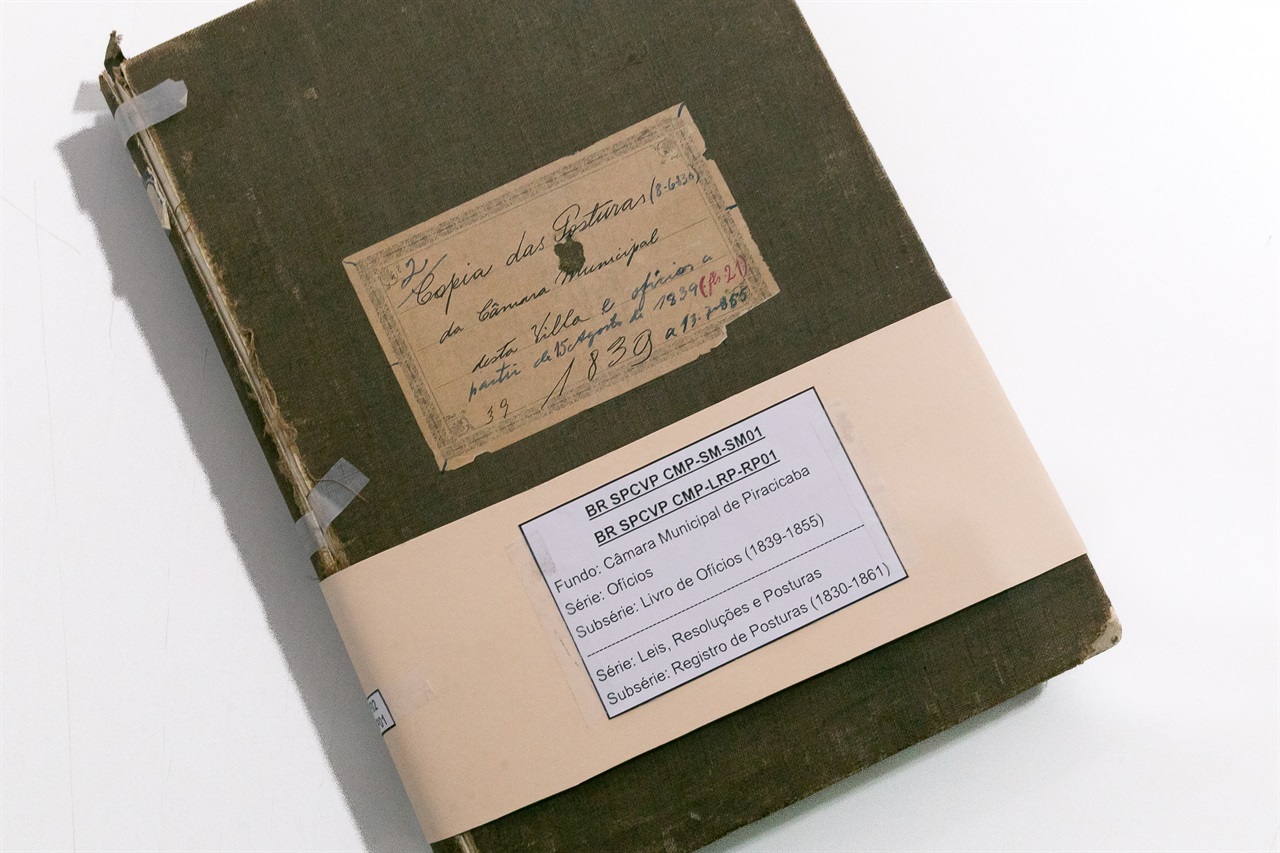 2
Copia das Posturas (8-6-830)
da Câmara Municipal
desta Villa e ofícios a
partir de 15 Agosto de 1839 (fls. 21)
1839 a 13-7-855
39
BR SPCVP CMP-SM-SM01
BR SPCVP CMP-LRP-RP01
Fundo: Câmara Municipal de Piracicaba
Série: Ofícios
Subsérie: Livro de Ofícios (1839-1855)
Série: Leis, Resoluções e Posturas
Subsérie: Registro de Posturas (1830-1861)